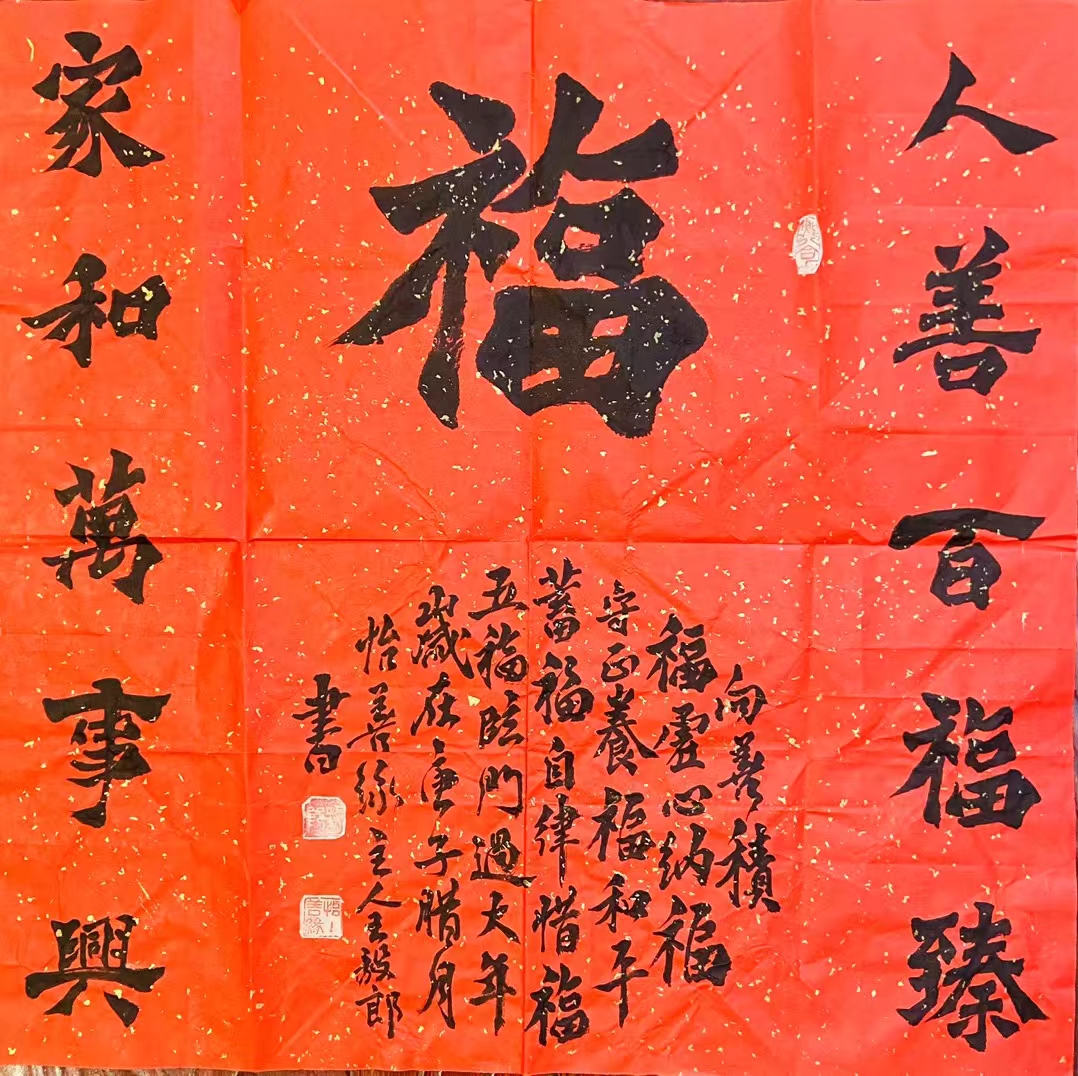 人善百福臻
福
向善積
福虚心纳福
守正養福和平
蓄福自律惜福
五福临門過大年
歲在庚子腊月
怡善缘主人王毅郎
書
家和萬事興